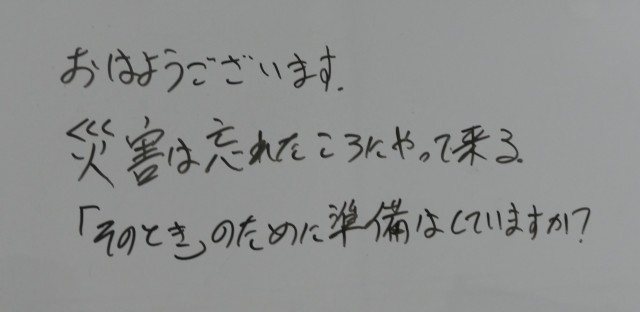 おはようございます.
災害は忘れたころにやって来る.
「そのとき」のために準備はしていますか?